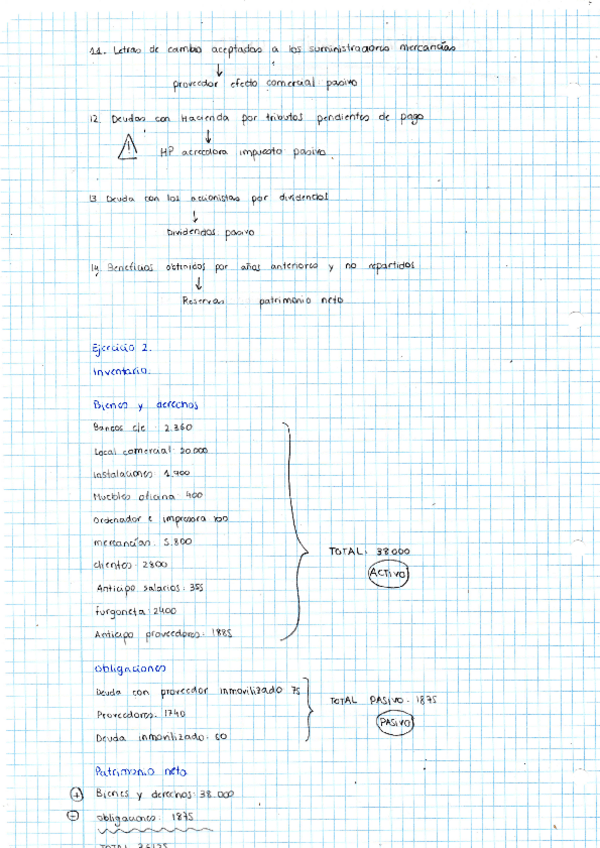 11. Letras de cambio aceptadas a los suministradores mercancías
↓
proveedor efecto comercial pasivo
12. Deudas con Hacienda por tributos pendientes de pago
↓
HP acreedora impuesto pasivo.
13 Deuda con los accionistas por dividendos
↓
Dividendos pasivo
14. Beneficios obtenidos por años anteriores y no repartidos
↓
Reservas patrimonio neto
Ejercicio 2.
Inventario.
Bienes y derechos
Bancos c/c 2.360
Local comercial 20.000
instalaciones 1.700
Muebles oficina 400
ordenador e impresora 100
mercancías. 5.800
clientes: 2800
Anticipo salarios: 355
furgoneta: 2400
Anticipo proveedores: 1885
TOTAL: 38000
ACTIVO
obligaciones
Deuda con proveedor inmovilizado 75
Proveedores. 1740
Deuda inmovilizado. 60
TOTAL PASIVO: 1875
PASIVO
Patrimonio neto
+ Bienes y derechos: 38.000
- obligaciones 1875
TOTAL 36125